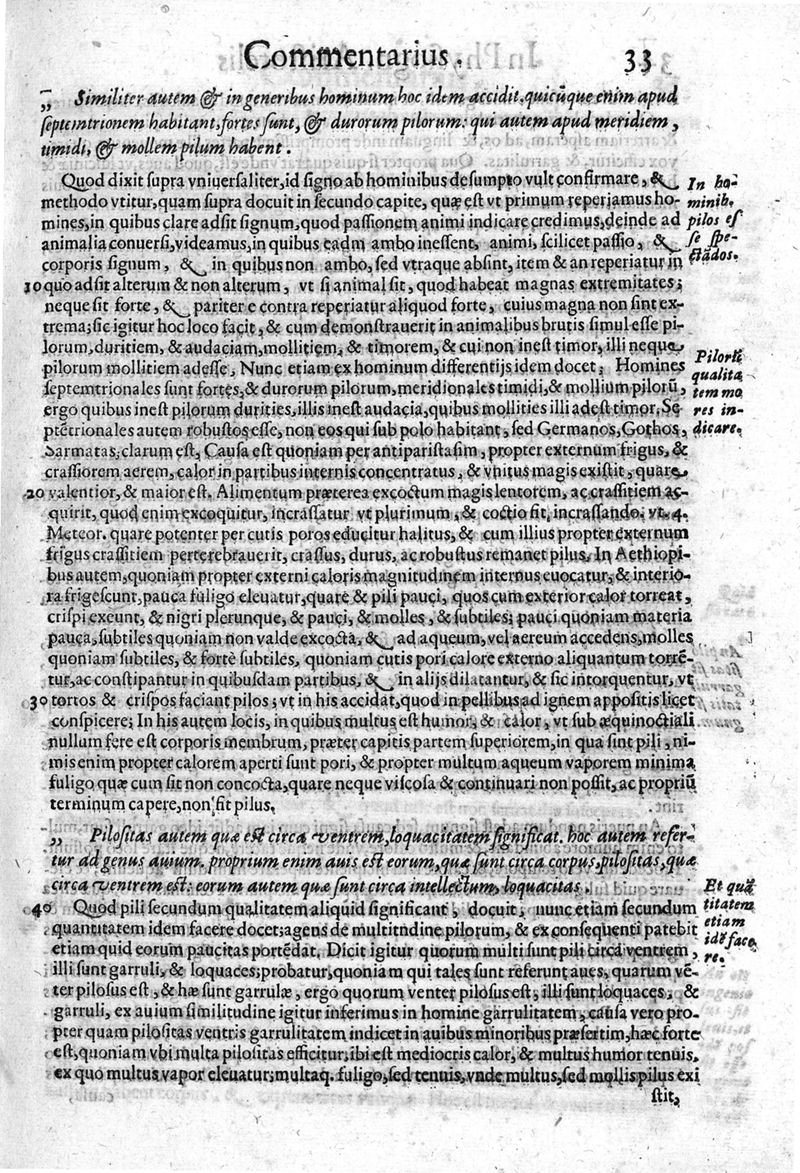 Commentarius. 33
„ Similiter autem & in generibus hominum hoc idem accidit. quicũque enim apud
septemtrionem habitant, fortes sunt, & durorum pilorum: qui autem apud meridiem,
timidi, & mollem pilum habent.
Quod dixit supra vniuersaliter, id signo ab hominibus desumpto vult confirmare, &
methodo vtitur, quam supra docuit in secundo capite, quæ est vt primum reperiamus ho-
mines, in quibus clare adsit signum, quod passionem animi indicare credimus, deinde ad
animalia conuersi, videamus, in quibus eadm ambo inessent, animi, scilicet passio, &
corporis signum, & in quibus non ambo, sed vtraque absint, item & an reperiatur in
10 quo adsit alterum & non alterum, vt si animal sit, quod habeat magnas extremitates;
neque sit forte, & pariter e contra reperiatur aliquod forte, cuius magna non sint ex-
trema; sic igitur hoc loco facit, & cum demonstrauerit in animalibus brutis simul esse pi-
lorum, duritiem, & audaciam, mollitiem, & timorem, & cui non inest timor, illi neque
pilorum mollitiem adesse, Nunc etiam ex hominum differentijs idem docet, Homines
septemtrionales sunt fortes, & durorum pilorum, meridionales timidi, & mollium pilorũ,
ergo quibus inest pilorum durities, illis inest audacia, quibus mollities illi adest timor, Se
ptẽtrionales autem robustos esse, non eos qui sub polo habitant, sed Germanos, Gothos,
Sarmatas, clarum est, Causa est quoniam per antiparistasim, propter externum frigus, &
crassiorem aerem, calor in partibus internis concentratus, & vnitus magis existit, quare
20 valentior, & maior est, Alimentum præterea excoctum magis lentorem, ac crassitiem ac-
quirit, quod enim excoquitur, incrassatur vt plurimum, & coctio fit, incrassando. vt. 4.
Meteor. quare potenter per cutis poros educitur halitus, & cum illius propter externum
frigus crassitiem perterebrauerit, crassus, durus, ac robustus remanet pilus, In Aethiopi-
bus autem, quoniam propter externi caloris magnitudinem internus euocatur, & interio-
ra frigescunt, pauca fuligo eleuatur, quare & pili pauci, quos cum exterior calor torreat,
crispi exeunt, & nigri plerunque, & pauci, & molles, & subtiles; pauci quoniam materia
pauca, subtiles quoniam non valde excocta, & ad aqueum, vel aereum accedens, molles
quoniam subtiles, & fortè subtiles, quoniam cutis pori calore externo aliquantum torrẽ-
tur, ac constipantur in quibusdam partibus, & in alijs dilatantur, & sic intorquentur, vt
30 tortos & crispos faciant pilos; vt in his accidat, quod in pellibus ad ignem appositis licet
conspicere; In his autem locis, in quibus multus est humor, & calor, vt sub æquinoctiali
nullum fere est corporis membrum, præter capitis partem superiorem, in qua sint pili, ni-
mis enim propter calorem aperti sunt pori, & propter multum aqueum vaporem minima
fuligo quæ cum sit non concocta, quare neque viscosa & continuari non possit, ac propriũ
terminum capere, non fit pilus.
„ Pilositas autem quæ est circa ventrem, loquacitatem significat. hoc autem refer-
tur ad genus auium. proprium enim auis est eorum, quæ sunt circa corpus, pilositas, quæ
circa ventrem est: eorum autem quæ sunt circa intellectum, loquacitas.
40 Quod pili secundum qualitatem aliquid significant, docuit, nunc etiam secundum
quantitatem idem facere docet; agens de multitndine pilorum, & ex consequenti patebit
etiam quid eorum paucitas portẽdat. Dicit igitur quorum multi sunt pili circa ventrem,
illi sunt garruli, & loquaces; probatur, quoniam qui tales sunt referunt aues, quarum vẽ-
ter pilosus est, & hæ sunt garrulæ, ergo quorum venter pilosus est, illi sunt loquaces, &
garruli, ex auium similitudine igitur inferimus in homine garrulitatem, causa vero pro-
pter quam pilositas ventris garrulitatem indicet in auibus minoribus præsertim, hæc forte
est, quoniam vbi multa pilositas efficitur, ibi est mediocris calor, & multus humor tenuis,
ex quo multus vapor eleuatur; multaq. fuligo, sed tenuis, vnde multus, sed mollis pilus exi
stit,
In ho-
minib.
pilos es
se spe-
ctãdos.
Pilorũ
qualita
tem mo
res in-
dicare.
Et quã
titatem
etiam
idẽ face
re.